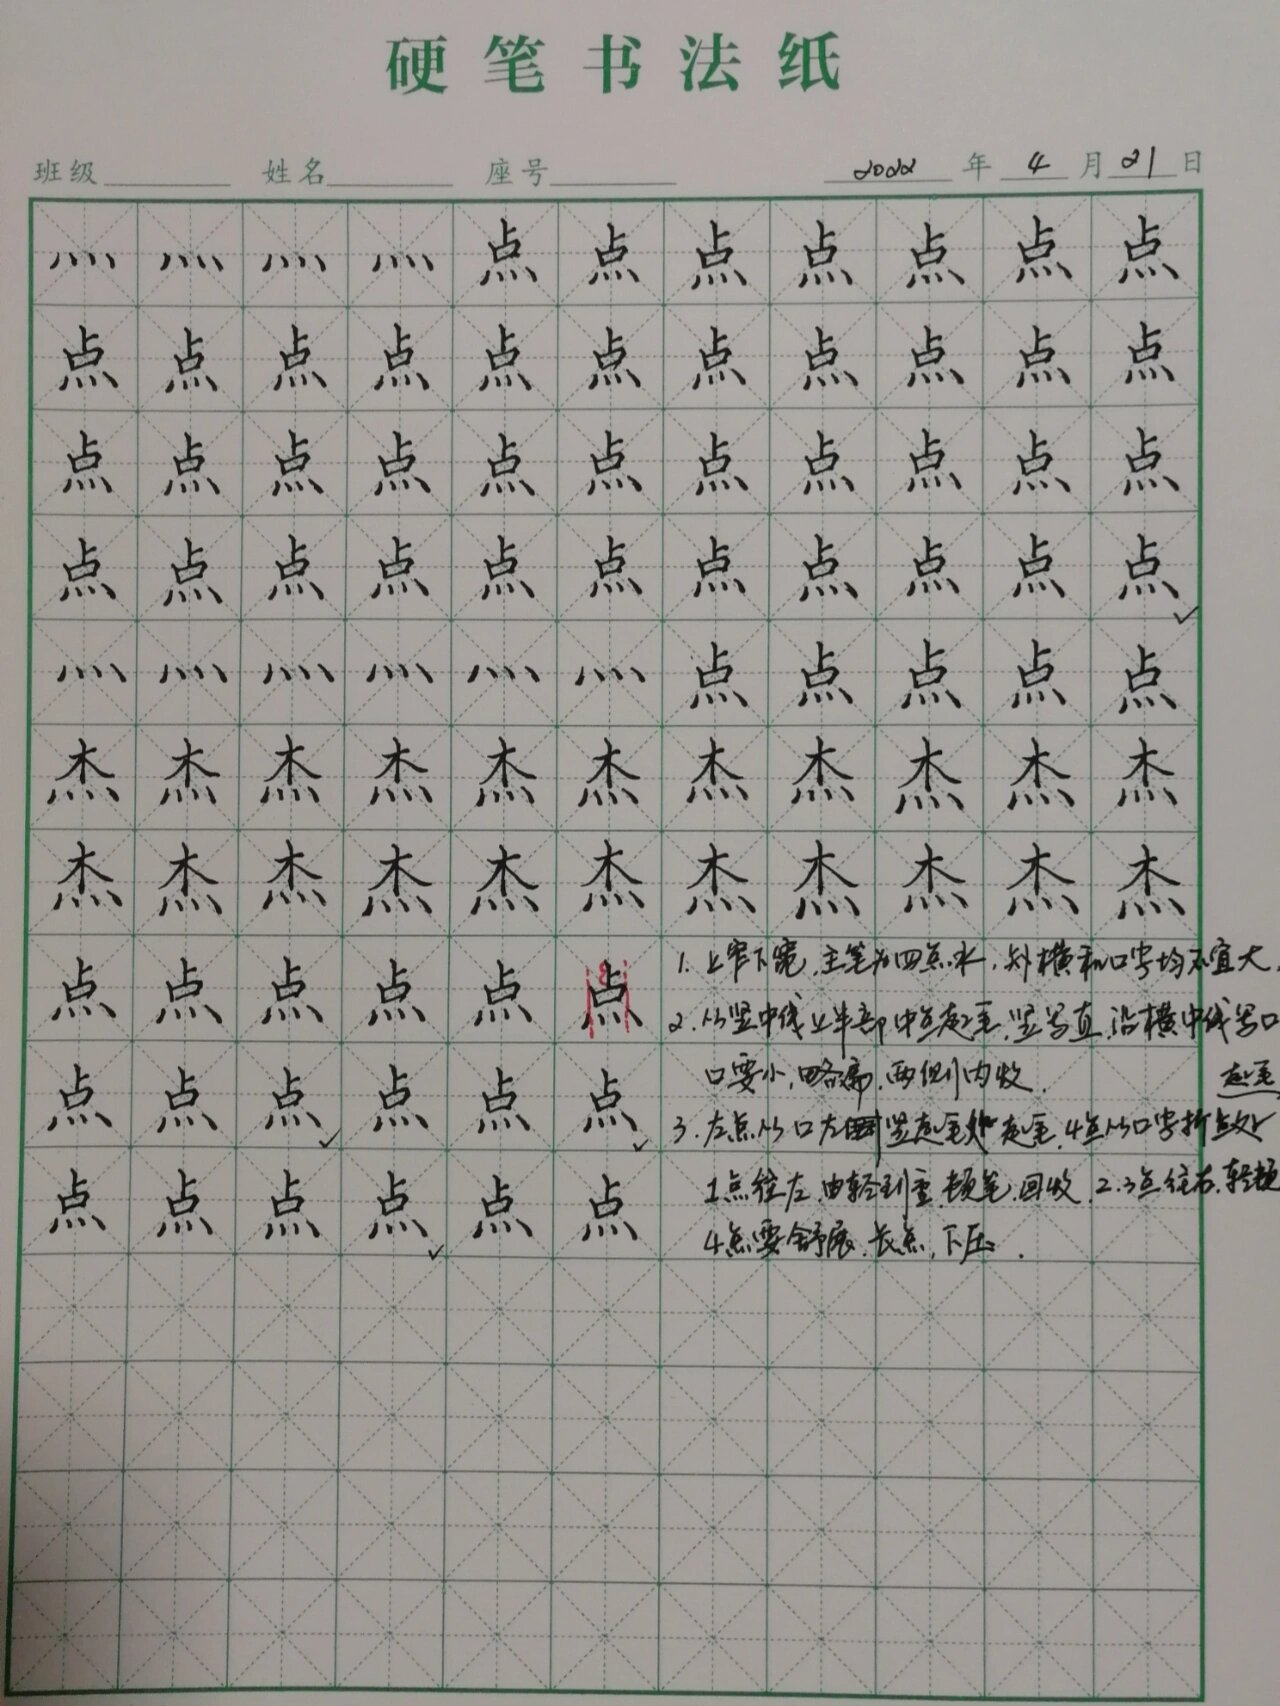 硬笔书法纸
班级 姓名 座号 2022 年 4 月 21 日
灬 灬 灬 灬 点 点 点 点 点 点 点
点 点 点 点 点 点 点 点 点 点 点
点 点 点 点 点 点 点 点 点 点 点
点 点 点 点 点 点 点 点 点 点 点
灬 灬 灬 灬 灬 灬 点 点 点 点 点
杰 杰 杰 杰 杰 杰 杰 杰 杰 杰 杰
杰 杰 杰 杰 杰 杰 杰 杰 杰 杰 杰
点 点 点 点 点 点
点 点 点 点 点 点
点 点 点 点 点 点
1. 上窄下宽,主笔为四点水,外横和口字均不宜大,
2. 从竖中线上半部中点起笔,竖写直,沿横中线写口
口要小,略扁,两侧内收.
起笔
3. 左点从口左竖起笔处起笔,4点从口字折点处
1点往左,由轻到重,顿笔,回收,2.3点往右,轻顿
4点要舒展,长点,下压.